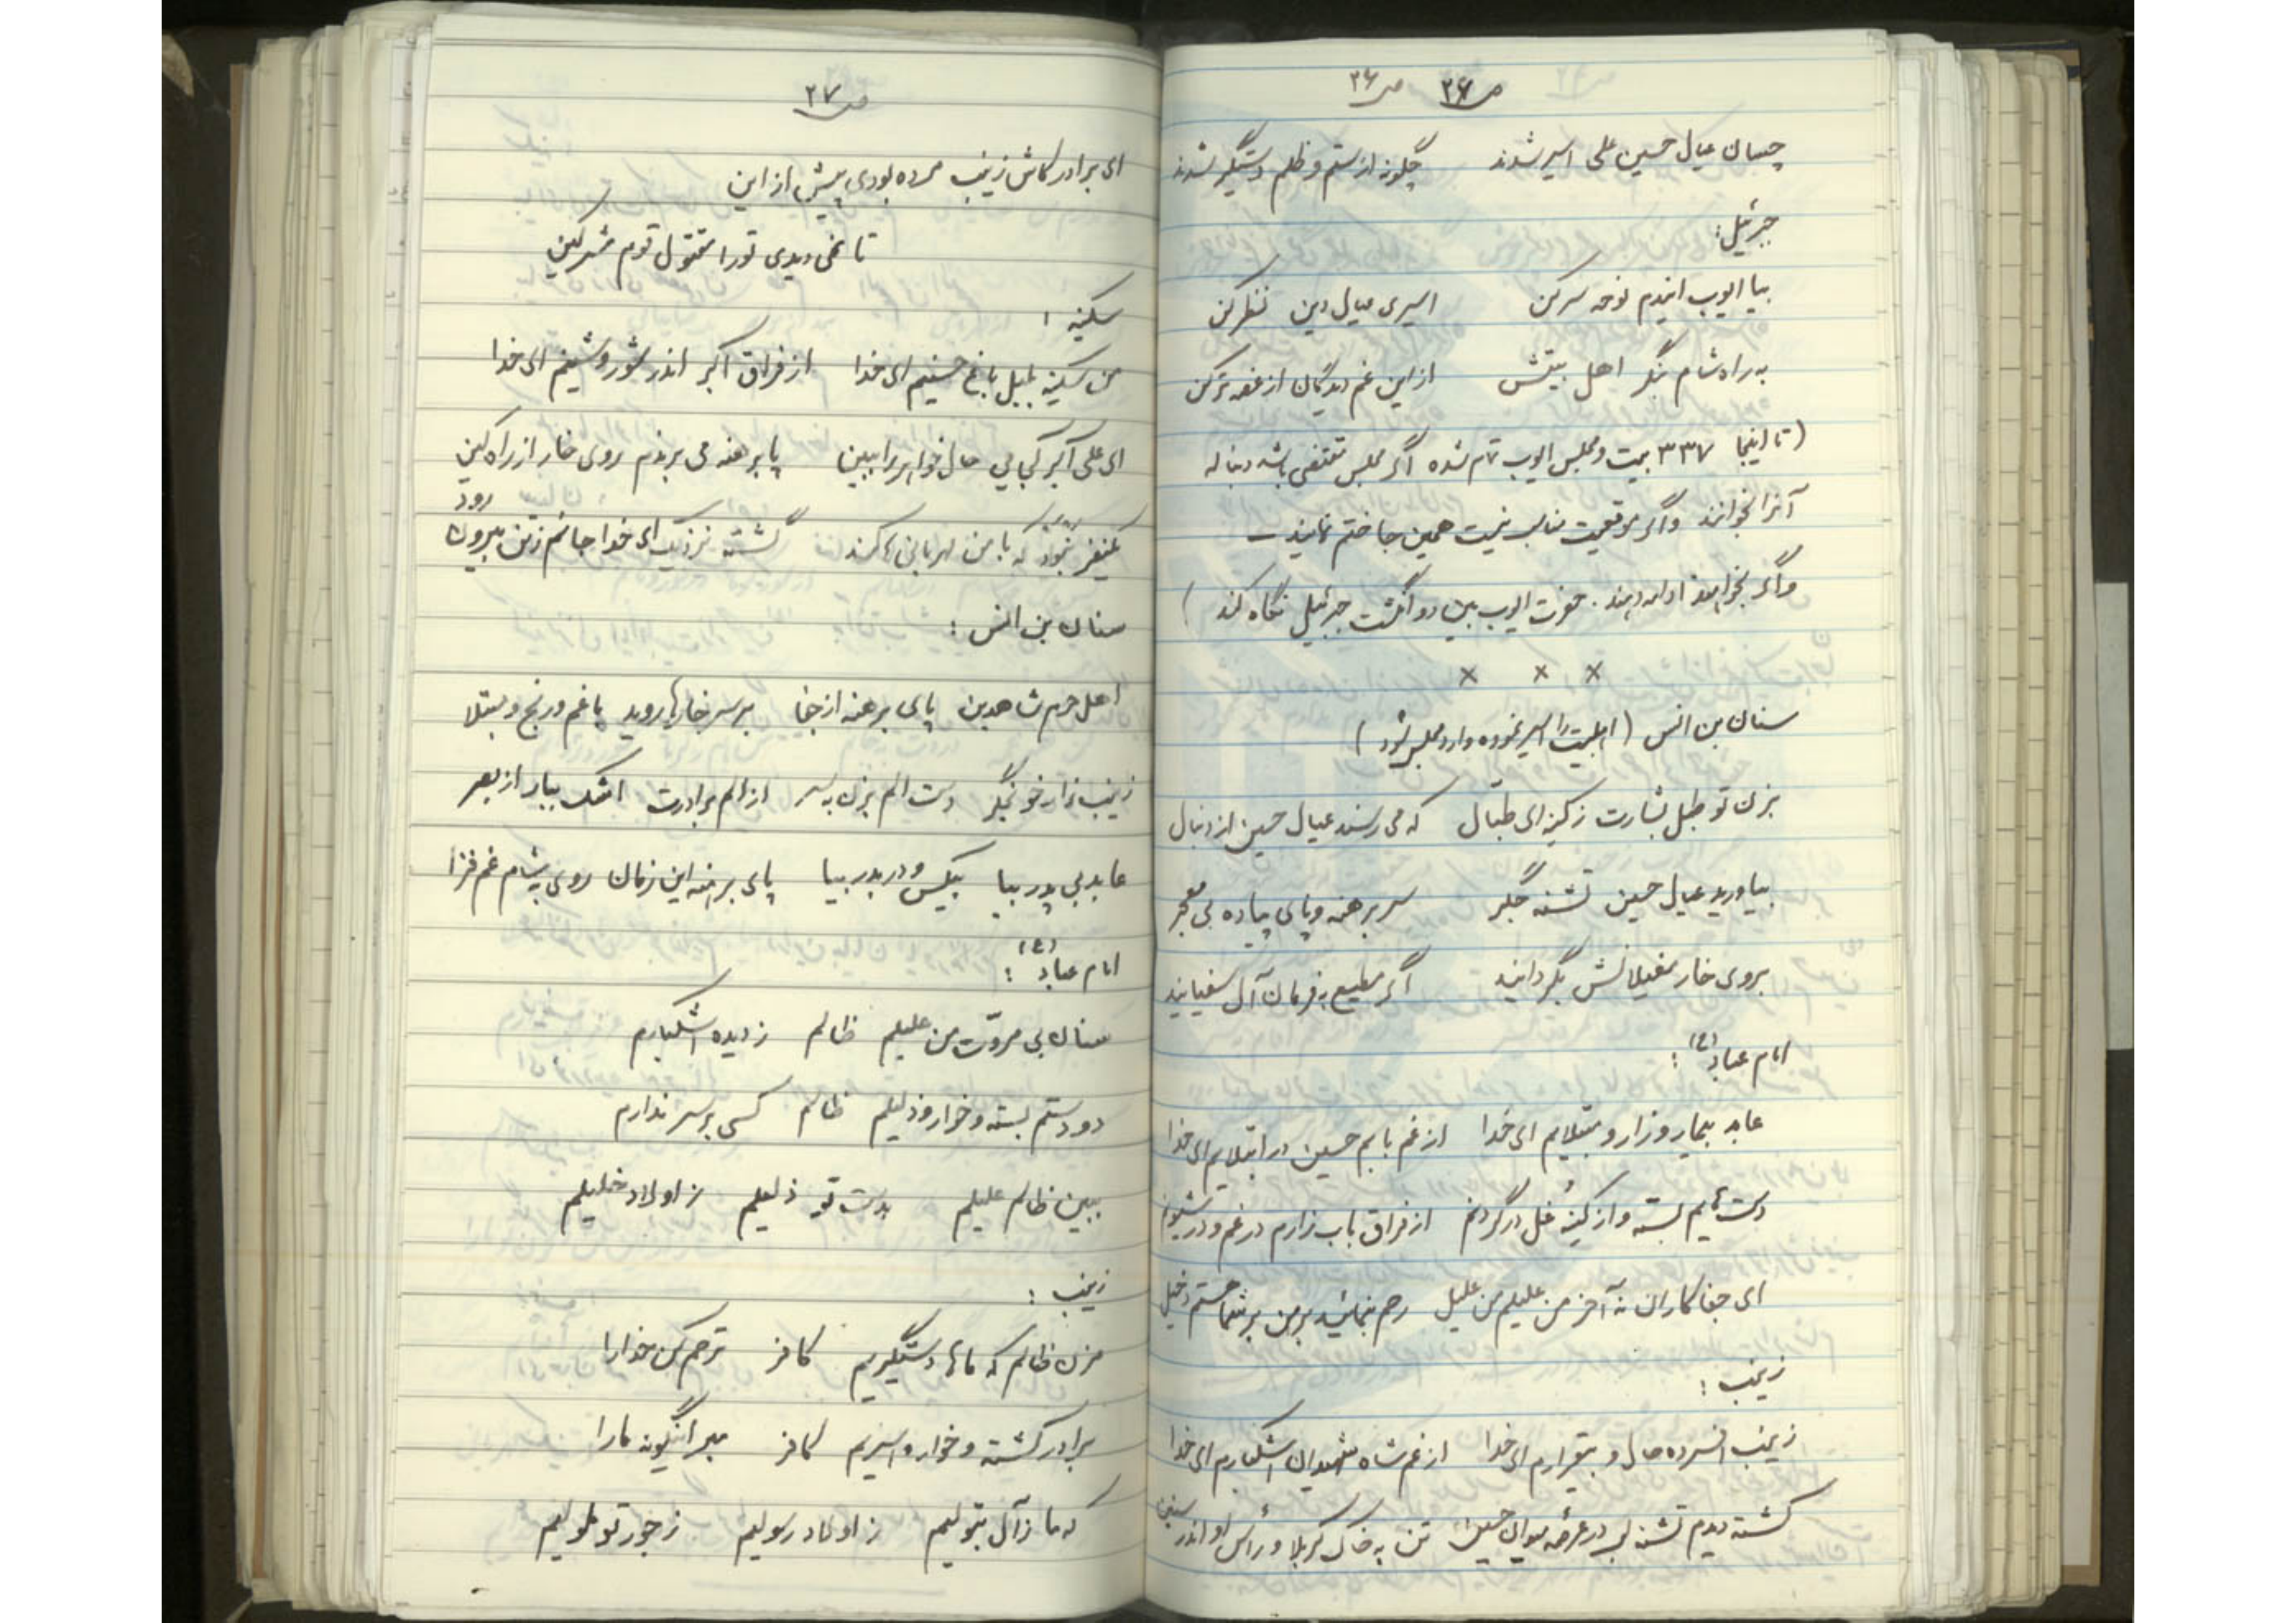 ص ۲۶ ص ۲۶
چسان عیال حسین علی اسیر شدند چگونه از ستم و ظلم دستگیر شدند
جبرئیل:
بیا ایوب ایندم نوحه سر کن اسیری عیال دین نظر کن
به راه شام بنگر اهل بیتش از این غم دیدگان از غصه تر کن
(تا اینجا ۳۳۷ بیت و مجلس ایوب تمام شده اگر مجلس مقتضی باشد دنباله
آنرا بخوانند و اگر موقعیت مناسب نیست همین جا ختم نمایند ـ
و اگر بخواهند ادامه دهند. حضرت ایوب بین دو انگشت جبرئیل نگاه کند)
× × ×
سنان بن انس (اهلبیت را اسیر نموده وارد مجلس شود)
بزن تو طبل بشارت ز کینه ای طبّال که می رسند عیال حسین از دنبال
بیاورید عیال حسین تشنه جگر سر برهنه و پای پیاده بی معجر
بروی خار مغیلانش بگردانید اگر مطیع به فرمان آل سفیانید
امام عباد (ع):
عابد بیمار و زار و مبتلایم ای خدا از غم بابم حسین در ابتلایم ای خدا
دست هایم بسته و از کینه غل در گردنم از فراق باب زارم در غم و در شیونم
ای جفاکاران نه آخر من علیلم من علیل رحم بنمائید بر من بر شما هستم دخیل
زینب:
زینب افسرده حال و بیقرارم ای خدا از غم شاه شهیدان اشکبارم ای خدا
کشته دیدم تشنه لب در عرصه میدان حسین تن به خاک کربلا و رأس او اندر سنین
ص ۲۷
ای برادر کاش زینب مرده بودی پیش از این
تا نمی دیدی تو را مقتول قوم مشرکین
سکینه:
من سکینه بلبل باغ حسینم ای خدا از فراق اکبر اندر شور و شینم ای خدا
ای علی اکبر کجایی حال خواهر را ببین پا برهنه می برندم روی خار از راه کین
یکنفر نبود که با من مهربانی ها کند گشته نزدیک ای خدا جانم ز تن بیرون رود
سنان بن انس:
اهل حرم شاهدین پای برهنه از جفا بر سر خارها روید با غم و رنج و مبتلا
زینب زار خونجگر دست الم بزن بسر از الم برادرت اشک ببار از بصر
عابد بی پدر بیا بیکس و دربدر بیا پای برهنه این زمان روی بشام غم فزا
امام عباد (ع):
سنان بی مروّت من علیلم ظالم ز دیده اشکبارم
دو دستم بسته و خوار و ذلیلم ظالم کسی بر سر ندارم
ببین ظالم علیلم بدست تو ذلیلم ز اولاد خلیلم
زینب:
مزن ظالم که ماها دستگیریم کافر ترحم کن خدا را
برادر کشته و خوار و اسیریم کافر مبر اینگونه ما را
که ما ز آل بتولیم ز اولاد رسولیم ز جور تو ملولیم